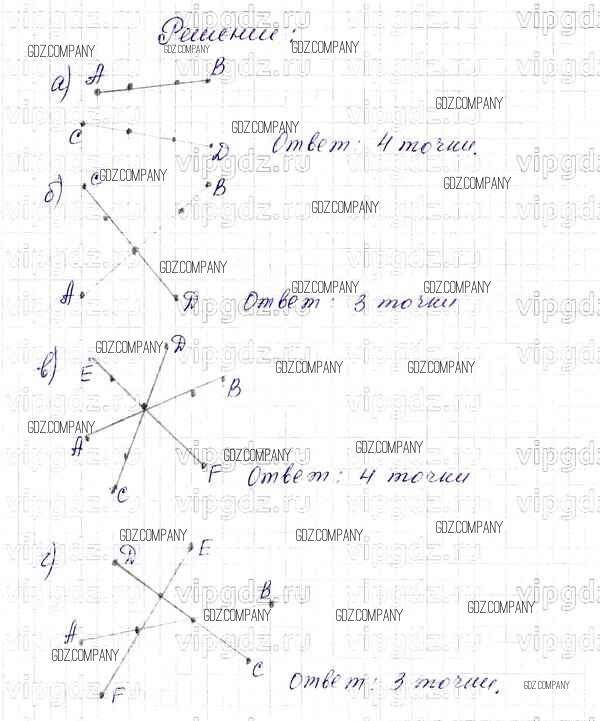 Решение:
а) A B
C D
Ответ: 4 точки.
б) C B
A D
Ответ: 3 точки
в) E D B
A C F
Ответ: 4 точки
г) D E B
A F C
Ответ: 3 точки.
GDZ.COMPANY
vipgdz.ru